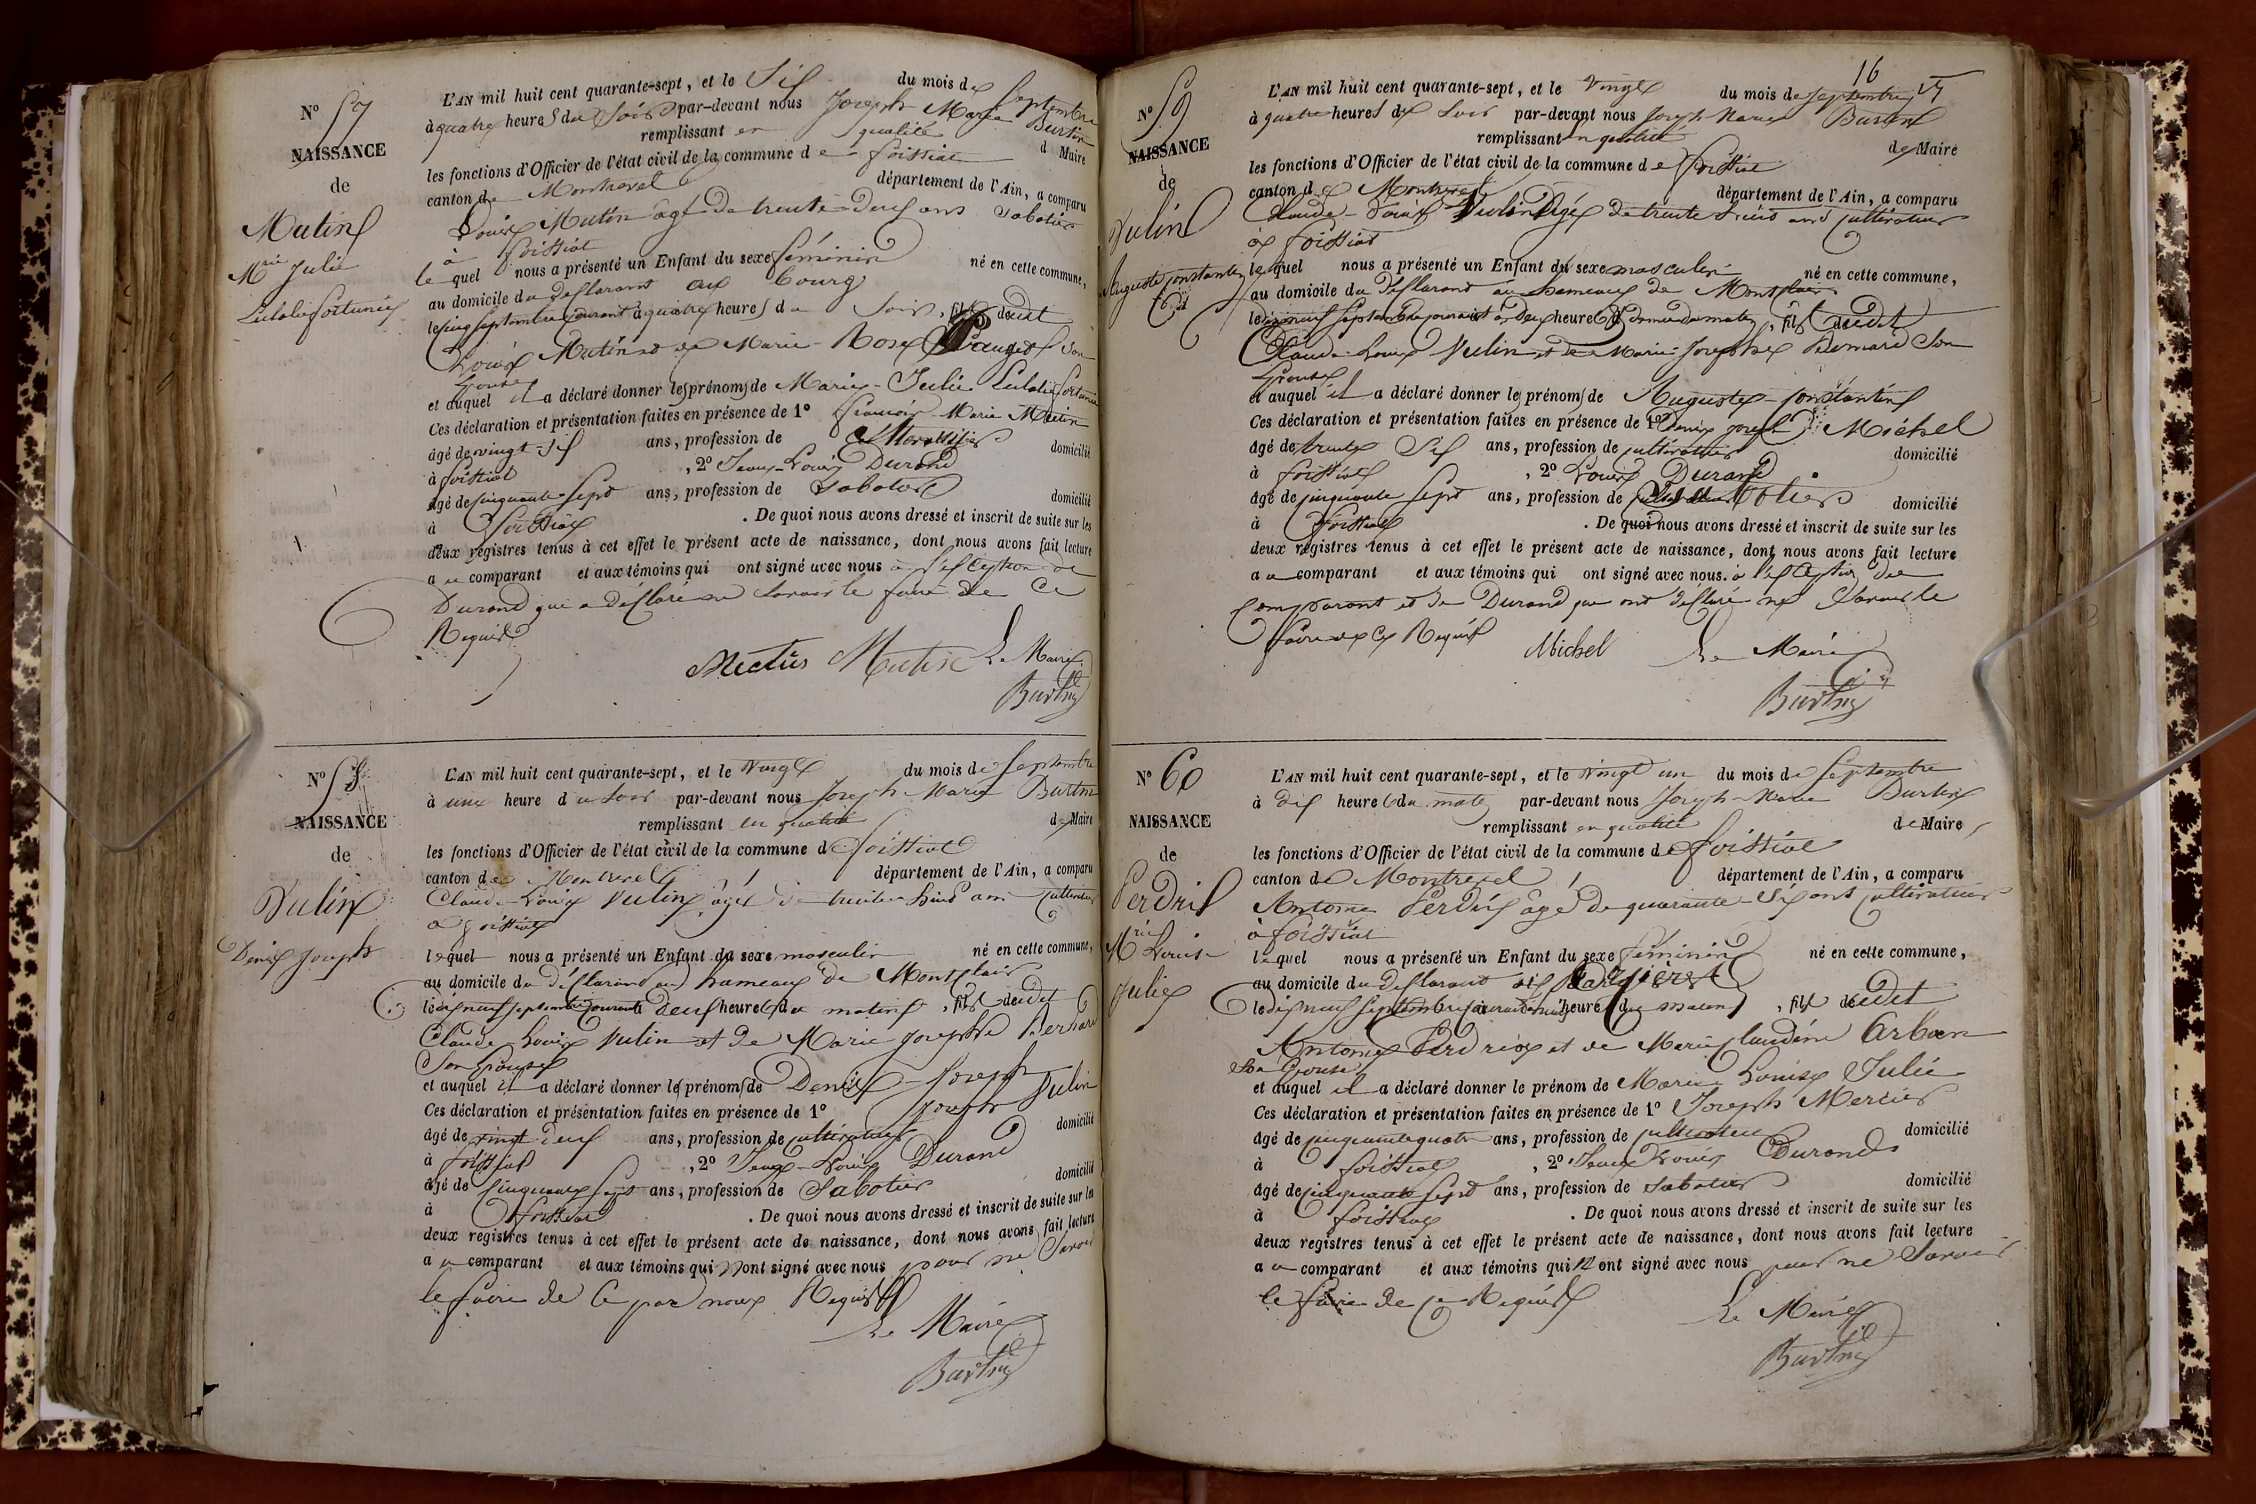 N° 57
NAISSANCE
de
Mutin
Mrie Julie
Eulalie Fortunée
L'AN mil huit cent quarante-sept, et le Six du mois de Septembre
à quatre heures du Soir par-devant nous Joseph Marie Burtin
remplissant en qualité de Maire
les fonctions d'Officier de l'état civil de la commune de foissiat
canton de Montrevel département de l'Ain, a comparu
Louis Mutin âgé de trente-deux ans Sabotier
à foissiat
lequel nous a présenté un Enfant du sexe féminin né en cette commune,
au domicile du déclarant au bourg
le cinq Septembre courant à quatre heures du Soir, fils dudit
Louis Mutin et de Marie-Rose Son
Epouse
et auquel il a déclaré donner les prénoms de Marie-Julie Eulalie fortunée
Ces déclaration et présentation faites en présence de 1° françois-Marie Mutin
âgé de vingt-six ans, profession de domicilié
à foissiat, 2° Jean-Louis Durand
âgé de cinquante Sept ans, profession de Sabotier domicilié
à foissiat. De quoi nous avons dressé et inscrit de suite sur les
deux registres tenus à cet effet le présent acte de naissance, dont nous avons fait lecture
au comparant et aux témoins qui ont signé avec nous à l'exception de
Durand qui a déclaré ne Savoir le faire de ce
Requis
Mutin Le Maire
Burtin
N° 58
NAISSANCE
de
Vulin
Denis Joseph
L'AN mil huit cent quarante-sept, et le Vingt du mois de Septembre
à une heure du Soir par-devant nous Joseph-Marie Burtin
remplissant en qualité de Maire
les fonctions d'Officier de l'état civil de la commune de foissiat
canton de Montrevel département de l'Ain, a comparu
Claude-Louis Vulin âgé de trente-huit ans cultivateur
à foissiat
lequel nous a présenté un Enfant du sexe masculin né en cette commune,
au domicile du déclarant au hameau de Montclair
le dix neuf septembre courant à deux heures du matin, fils dudit
Claude-Louis Vulin et de Marie Josephte Bernard
Son Epouse
et auquel il a déclaré donner les prénoms de Denis-Joseph
Ces déclaration et présentation faites en présence de 1° Joseph Vulin
âgé de vingt deux ans, profession de cultivateur domicilié
à foissiat, 2° Jean-Louis Durand
âgé de cinquante sept ans, profession de Sabotier domicilié
à foissiat. De quoi nous avons dressé et inscrit de suite sur les
deux registres tenus à cet effet le présent acte de naissance, dont nous avons fait lecture
au comparant et aux témoins qui n'ont signé avec nous pour ne Savoir
le faire de ce par nous Requis
Le Maire
Burtin
16
N° 59
NAISSANCE
de
Vulin
Auguste Constantin
L'AN mil huit cent quarante-sept, et le Vingt du mois de Septembre
à quatre heures du Soir par-devant nous Joseph Marie Burtin
remplissant en qualité de Maire
les fonctions d'Officier de l'état civil de la commune de foissiat
canton de Montrevel département de l'Ain, a comparu
Claude-Louis Vulin âgé de trente huit ans cultivateur
à foissiat
lequel nous a présenté un Enfant du sexe masculin né en cette commune,
au domicile du déclarant au hameau de Montclair
le dix neuf Septembre courant à Deux heures du matin, fils dudit
Claude-Louis Vulin et de Marie-Josephte Bernard Son
Epouse
et auquel il a déclaré donner les prénoms de Auguste-Constantin
Ces déclaration et présentation faites en présence de 1° Denis Joseph Michel
âgé de trente Six ans, profession de cultivateur domicilié
à foissiat, 2° Louis Durand
âgé de cinquante Sept ans, profession de domicilié
à foissiat. De quoi nous avons dressé et inscrit de suite sur les
deux registres tenus à cet effet le présent acte de naissance, dont nous avons fait lecture
au comparant et aux témoins qui ont signé avec nous à l'exception du
comparant et de Durand qui ont déclaré ne Savoir le
faire de ce Requis
Michel Le Maire
Burtin
N° 60
NAISSANCE
de
Perdrix
Mrie Louise
Julie
L'AN mil huit cent quarante-sept, et le Vingt un du mois de Septembre
à dix heures du matin par-devant nous Joseph-Marie Burtin
remplissant en qualité de Maire
les fonctions d'Officier de l'état civil de la commune de foissiat
canton de Montrevel département de l'Ain, a comparu
Antoine Perdrix âgé de quarante-Six ans cultivateur
à foissiat
lequel nous a présenté un Enfant du sexe féminin né en cette commune,
au domicile du déclarant
le dix neuf Septembre courant à heures du matin, fils dudit
Antoine Perdrix et de Marie Claudine Arban
Son Epouse
et auquel il a déclaré donner le prénom de Marie Louise Julie
Ces déclaration et présentation faites en présence de 1° Joseph Mercier
âgé de cinquante quatre ans, profession de cultivateur domicilié
à foissiat, 2° Jean Louis Durand
âgé de cinquante Sept ans, profession de Sabotier domicilié
à foissiat. De quoi nous avons dressé et inscrit de suite sur les
deux registres tenus à cet effet le présent acte de naissance, dont nous avons fait lecture
au comparant et aux témoins qui n'ont signé avec nous pour ne Savoir
le faire de ce Requis
Le Maire
Burtin